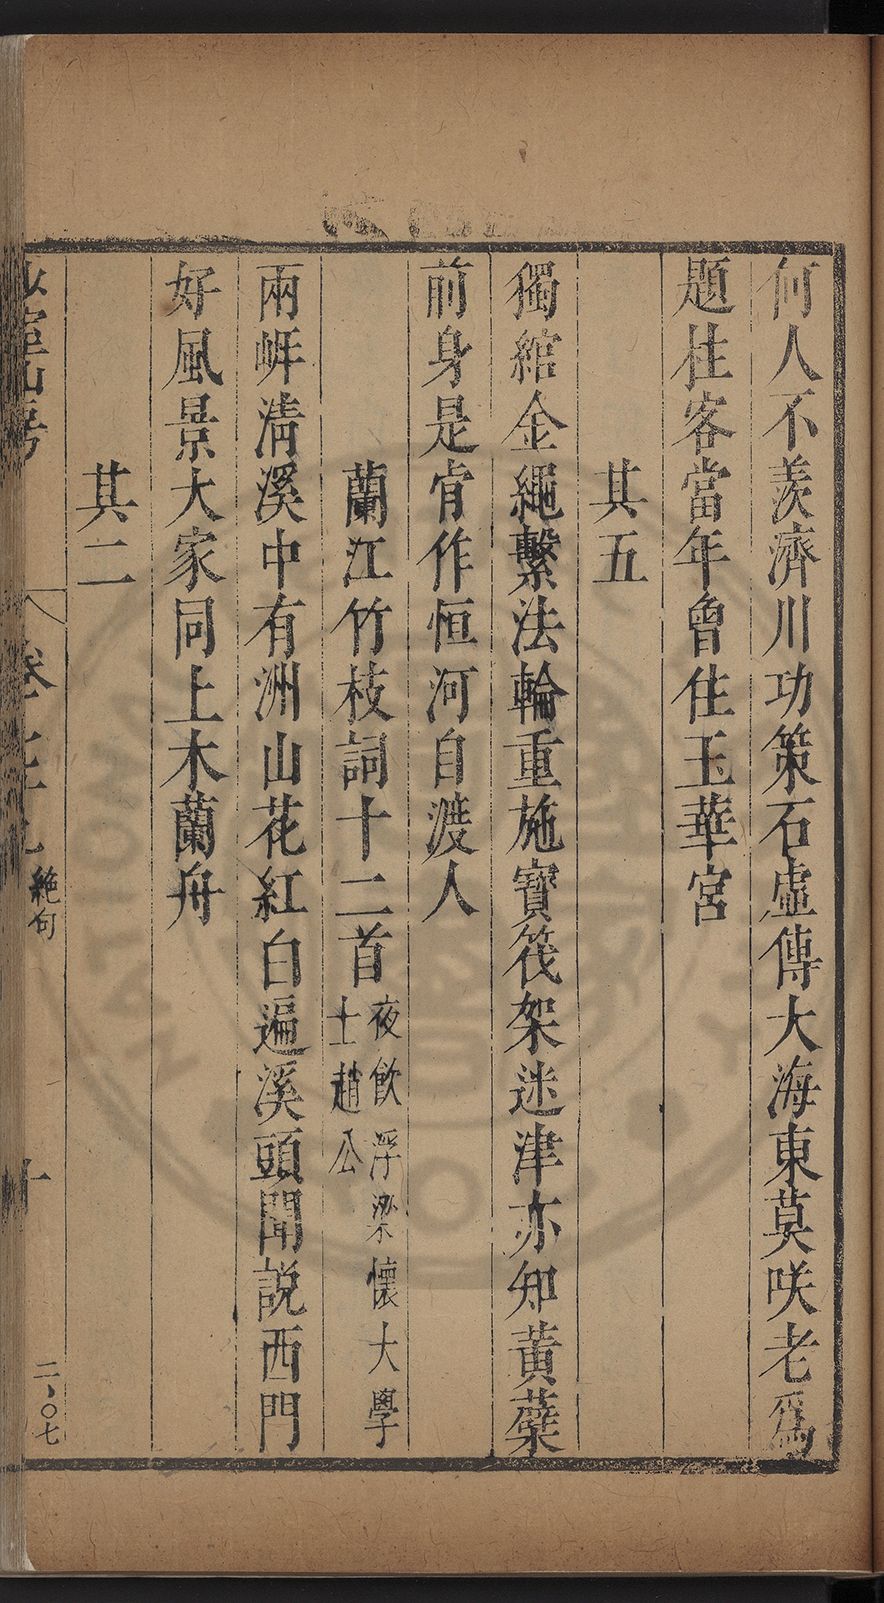 何人不羨濟川功策石虛傳大海東莫咲老爲
題柱客當年曾住玉華宮
其五
獨綰金繩繫法輪重施寶筏架迷津亦知黃蘗
前身是肯作恒河自渡人
蘭江竹枝詞十二首 夜飲浮梁懷大學
士趙公
兩岸清溪中有洲山花紅白遍溪頭聞説西門
好風景大家同上木蘭舟
其二
山房
絶句
十
二、〇七